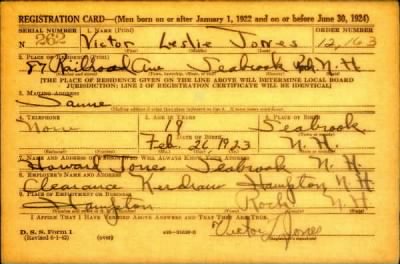 REGISTRATION CARD—(Men born on or after January 1, 1922 and on or before June 30, 1924)
SERIAL NUMBER 1. NAME (Print) ORDER NUMBER
N 262 Victor Leslie Jones 12,163
2. PLACE OF RESIDENCE (Print)
Railroad Ave Seabrook N.H
[THE PLACE OF RESIDENCE GIVEN ON THE LINE ABOVE WILL DETERMINE LOCAL BOARD
JURISDICTION; LINE 2 OF REGISTRATION CERTIFICATE WILL BE IDENTICAL]
3. MAILING ADDRESS
Same
4. TELEPHONE 5. AGE IN YEARS 6. PLACE OF BIRTH
None Seabrook
DATE OF BIRTH
Feb 26 1923 N.H.
7. NAME AND ADDRESS OF PERSON WHO WILL ALWAYS KNOW YOUR ADDRESS
Howard Jones Seabrook N.H
8. EMPLOYER'S NAME AND ADDRESS
Clearance Hampton N H
9. PLACE OF EMPLOYMENT OR BUSINESS
Hampton Rock N.H.
I AFFIRM THAT I HAVE VERIFIED ABOVE ANSWERS AND THAT THEY ARE TRUE.
D. S. S. Form 1
Victor L Jones